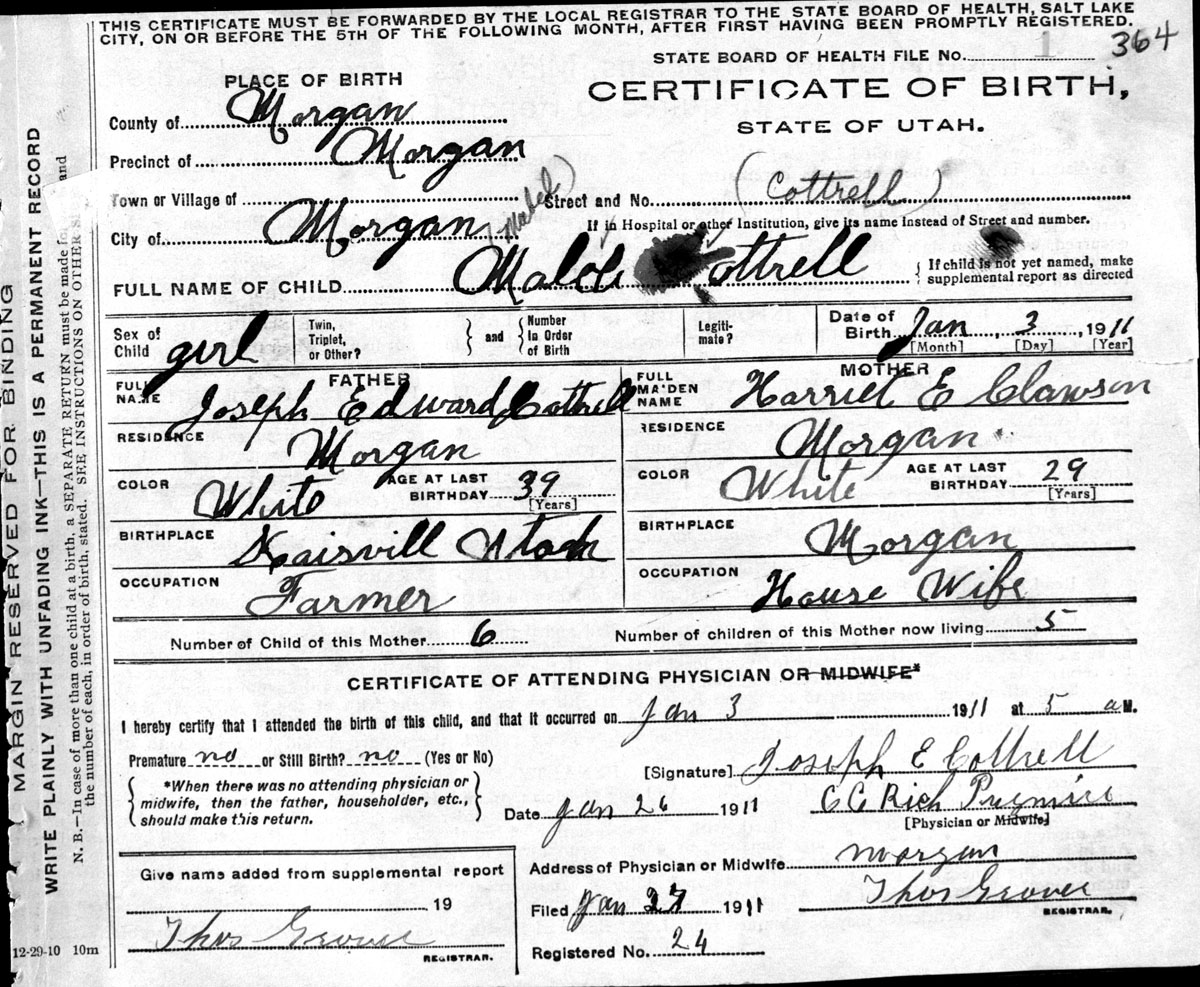 THIS CERTIFICATE MUST BE FORWARDED BY THE LOCAL REGISTRAR TO THE STATE BOARD OF HEALTH, SALT LAKE
CITY, ON OR BEFORE THE 5TH OF THE FOLLOWING MONTH, AFTER FIRST HAVING BEEN PROMPTLY REGISTERED.
364
STATE BOARD OF HEALTH FILE NO. 1
PLACE OF BIRTH
CERTIFICATE OF BIRTH,
STATE OF UTAH.
County of Morgan
Precinct of Morgan
Town or Village of
Street and No. (Cottrell)
City of Morgan (Mabel)
If in Hospital or other Institution, give its name instead of Street and number.
FULL NAME OF CHILD Cottrell
If child is not yet named, make
supplemental report as directed
Sex of Child girl
Twin, Triplet, or Other?
and
Number In Order of Birth
Legiti- mate?
Date of Birth Jan 3, 1911
[Month] [Day] [Year]
FATHER
FULL NAME Joseph Edward Cottrell
RESIDENCE Morgan
COLOR White
AGE AT LAST BIRTHDAY 39
[Years]
BIRTHPLACE Kaisvill Utah
OCCUPATION Farmer
MOTHER
FULL MAIDEN NAME Harriet E Clawson
RESIDENCE Morgan
COLOR White
AGE AT LAST BIRTHDAY 29
[Years]
BIRTHPLACE Morgan
OCCUPATION House Wife
Number of Child of this Mother 6
Number of children of this Mother now living 5
CERTIFICATE OF ATTENDING PHYSICIAN OR MIDWIFE*
I hereby certify that I attended the birth of this child, and that it occurred on Jan 3 1911 at 5 a M.
Premature no or Still Birth? no (Yes or No)
[Signature] Joseph E Cottrell
*When there was no attending physician or
midwife, then the father, householder, etc.,
should make this return.
Date Jan 26 1911
C C Rich
[Physician or Midwife]
Give name added from supplemental report
19
Thos Grover
REGISTRAR.
Address of Physician or Midwife Morgan
Filed Jan 27 1911
Thos Grover
REGISTRAR.
Registered No. 24
12-29-10 10m
MARGIN RESERVED FOR BINDING
WRITE PLAINLY WITH UNFADING INK—THIS IS A PERMANENT RECORD
N. B.—In case of more than one child at a birth, a SEPARATE RETURN must be made for and
the number of each, in order of birth, stated. SEE INSTRUCTIONS ON OTHER